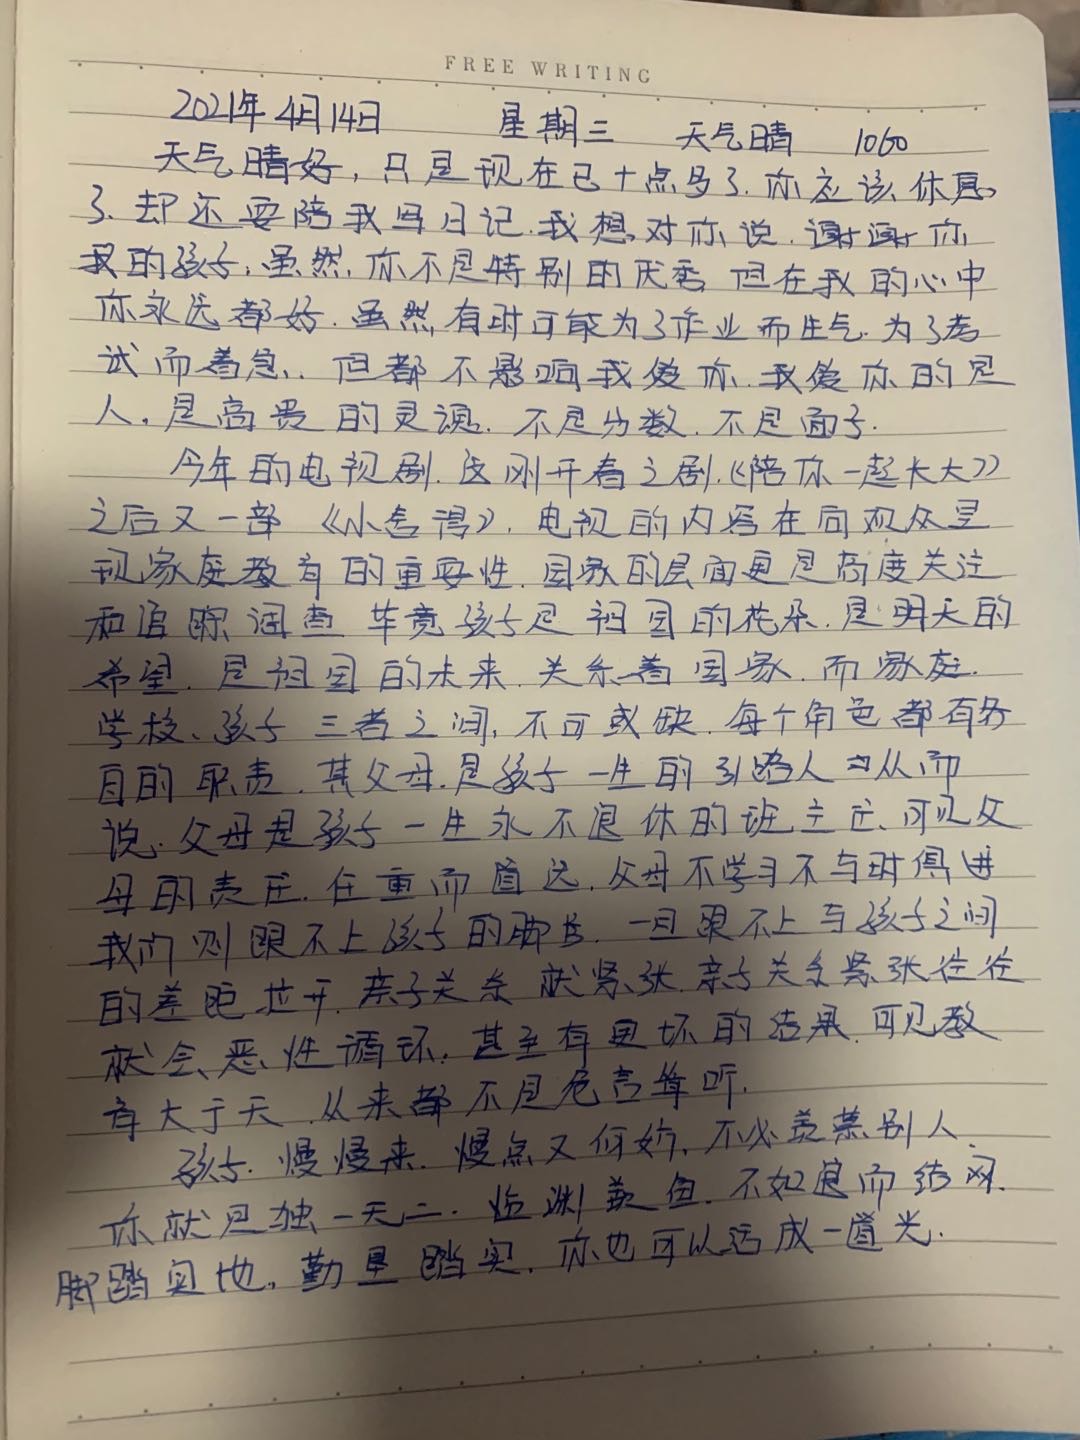 FREE WRITING
2021年4月14日 星期三 天气晴 1060
天气晴好，只是现在已十点多了.你应该休息
了.却还要陪我写日记.我想对你说.谢谢你
我的孩子.虽然.你不是特别的优秀 但在我的心中
你永远都好.虽然有时可能为了作业而生气.为了考
试而着急.但都不影响我爱你.我爱你的是
人.是高贵的灵魂.不是分数.不是面子.
今年的电视剧.这刚开看之剧.《陪你一起长大》
之后又一部《小舍得》.电视的内容在向观众呈
现家庭教育的重要性.国家的层面更是高度关注
和追踪调查 毕竟孩子是祖国的花朵.是明天的
希望.是祖国的未来.关系着国家.而家庭.
学校、孩子 三者之间,不可或缺.每个角色都有各
自的职责.其父母.是孩子一生的引路人 从而
说.父母是孩子一生永不退休的班主任.可见父
母的责任.任重而道远.父母不学习不与时俱进
我们则跟不上孩子的脚步.一旦跟不上与孩子之间
的差距拉开.亲子关系就紧张.亲子关系紧张往往
就会恶性循环.甚至有更坏的结果.可见教
育大于天.从来都不是危言耸听.
孩子.慢慢来.慢点又何妨.不必羡慕别人.
你就是独一无二.临渊羡鱼.不如退而结网.
脚踏实地.勤垦踏实.你也可以活成一道光.